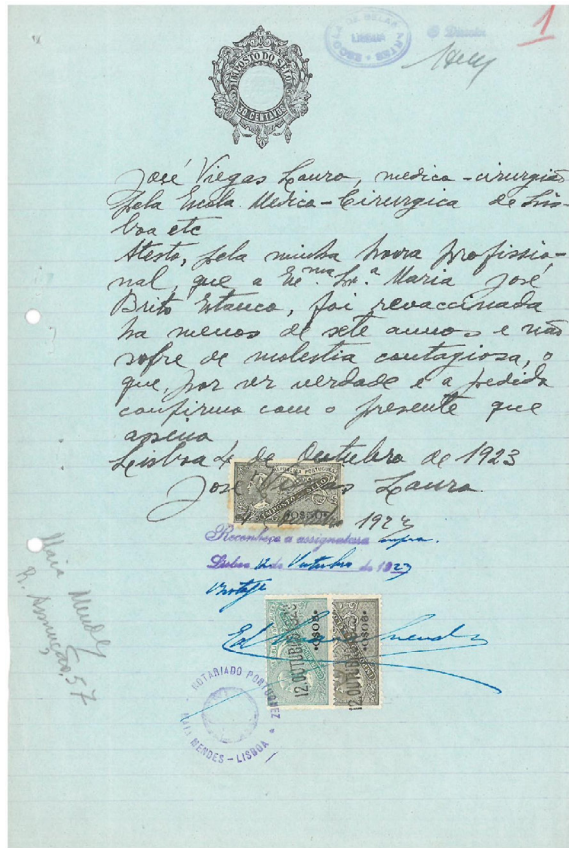 1
ESCOLA DE BELAS ARTES
LISBOA
O Director
IMPOSTO DO SELO
CENTAVOS
José Viegas Louro, medico-cirurgião
pela Escola Medico-Cirurgica de Lis-
boa etc
Atesto, pela minha honra profissio-
nal, que a Exᵐᵃ Srᵃ Maria José
Brito Estanco, foi revaccinada
ha menos de sete annos e não
sofre de molestia contagiosa, o
que, por ser verdade e a pedido
confirmo com o presente que
assino
Lisboa 4 de Outubro de 1923
José Viegas Louro
Reconheço a assignatura supra.
Lisboa 12 de Outubro de 1923
12.OUTUBRO
12.OUTUBRO
NOTARIADO PORTUGUEZ
MAIA MENDES - LISBOA
Maia Mendes
R. Assunção, 57